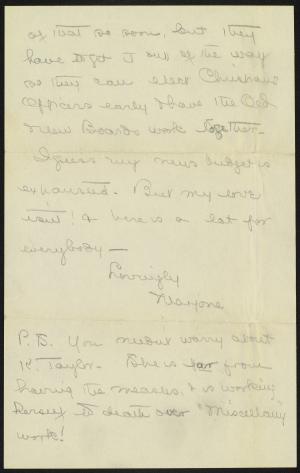 of that so soon, but they
have to get it out of the way
so they can elect Christians
Officers early & have the Old
& New Boards work together.
I guess my news budget is
exhausted. But my love
isn't! & here is a lot for
everybody —
Lovingly
Marjorie
P.S. You needn't worry about
K. Taylor. She is far from
having the measles, & is working
herself to death over "Miscellany"
work!